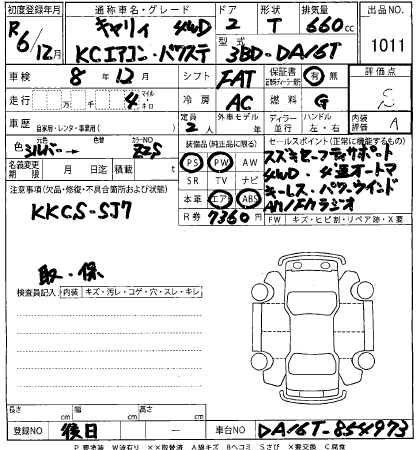 初度登録年月 通称車名・グレード ドア 形状 排気量 出品NO.
R6/12月 キャリイ 4WD 2 T 660cc
KCエアコン・パワステ 型式 3BD-DA16T 1011
車検 8年12月 シフト FAT 保証書 有 無 評価点
走行 万 千 4 マイル キロ 冷房 AC 燃料 G S
車歴 自家用・レンタ・事業用( ) 定員 2人 外車モデル 年 ディーラー 並行 ハンドル 左・右 内装評価 A
色 シルバー 元色 カラーNO ZZS 装備品(純正品に限る) セールスポイント(正常に機能するもの)
名義変更期限 月 日迄 積載 t PS PW AW スズキセーフティサポート
SR TV ナビ 4WD・4速オートマ
注意事項(欠品・修復・不具合箇所および状態) 本革 エアB ABS キーレス・パワーウインド
KKCS-SJ7 R券 7360円 AM/FMラジオ
FW キズ・ヒビ割・リペア跡・X要
取・保
検査員記入 内装 キズ・汚レ・コゲ・穴・スレ・キレ
長さ cm 幅 cm 高さ cm
登録NO 後日 車台NO DA16T-854973
P要塗装 W波有り XX取替済 A線キズ Bヘコミ Sさび X要交換 C腐食